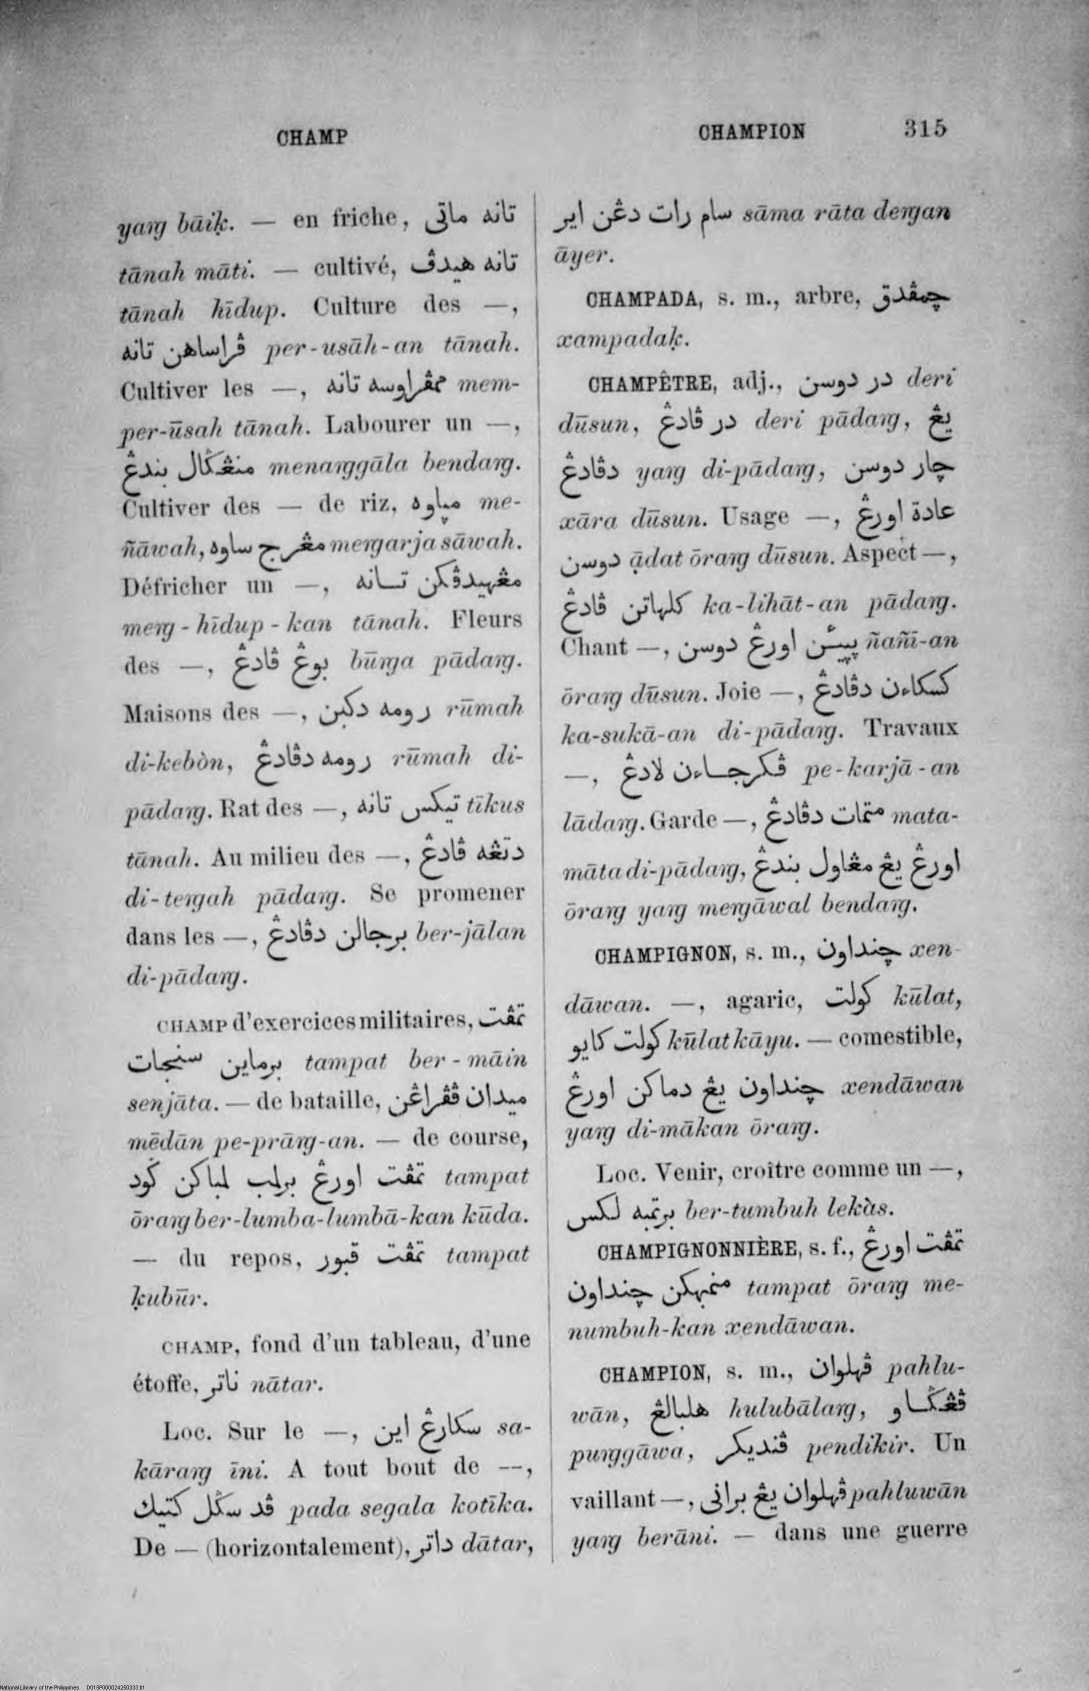 CHAMP
CHAMPION 315
yaṅg bāiḳ. — en friche, تانه ماتی
tānah māti. — cultivé, تانه هيدڤ
tānah hīdup. Culture des —,
ڤراساهن تانه per-usāh-an tānah.
Cultiver les —, ممڤراوسه تانه mem-
per-ūsah tānah. Labourer un —,
منڠݢال بندڠ menaṅggāla bendaṅg.
Cultiver des — de riz, مپاوه me-
ñāwah, مڠرج ساوه meṅgarja sāwah.
Défricher un —, مڠهيدڤكن تانه
meṅg-hīdup-kan tānah. Fleurs
des —, بوڠ ڤادڠ būṅga pādaṅg.
Maisons des —, رومه دكبن rūmah
di-kebòn, رومه دڤادڠ rūmah di-
pādaṅg. Rat des —, تيكس تانه tīkus
tānah. Au milieu des —, دتڠه ڤادڠ
di-teṅgah pādaṅg. Se promener
dans les —, برجالن دڤادڠ ber-jālan
di-pādaṅg.
CHAMP d'exercices militaires, تمڤت
برماين سنجات tampat ber-māin
senjāta. — de bataille, ميدان ڤڤراڠن
mēdān pe-prāṅg-an. — de course,
تمڤت اورڠ برلمب لمباكن كود tampat
ōraṅg ber-lumba-lumbā-kan kūda.
— du repos, تمڤت قبور tampat
ḳubūr.
CHAMP, fond d'un tableau, d'une
étoffe, ناتر nātar.
Loc. Sur le —, سكارڠ اين sa-
kāraṅg īni. A tout bout de —,
ڤد سݢل كتيك pada segala kotīka.
De — (horizontalement), داتر dātar,
سام رات دڠن اير sāma rāta deṅgan
āyer.
CHAMPADA, s. m., arbre, چمڤدق
xampadaḳ.
CHAMPÊTRE, adj., در دوسن deri
dūsun, در ڤادڠ deri pādaṅg, يڠ
دڤادڠ yaṅg di-pādaṅg, چار دوسن
xāra dūsun. Usage —, عادة اورڠ
دوسن ạ̄dat ōraṅg dūsun. Aspect —,
كلهاتن ڤادڠ ka-lihāt-an pādaṅg.
Chant —, پپيئن اورڠ دوسن ñañī-an
ōraṅg dūsun. Joie —, كسكاءن دڤادڠ
ka-sukā-an di-pādaṅg. Travaux
—, ڤكرجاءن لادڠ pe-karjā-an
lādaṅg. Garde —, متمات دڤادڠ mata-
māta di-pādaṅg, اورڠ يڠ مڠاول بندڠ
ōraṅg yaṅg meṅgāwal bendaṅg.
CHAMPIGNON, s. m., چنداون xen-
dāwan. —, agaric, كولت kūlat,
كولت كايو kūlat kāyu. — comestible,
چنداون يڠ دماكن اورڠ xendāwan
yaṅg di-mākan ōraṅg.
Loc. Venir, croître comme un —,
برتمبه لكس ber-tumbuh lekàs.
CHAMPIGNONNIÈRE, s. f., تمڤت اورڠ
منمبهكن چنداون tampat ōraṅg me-
numbuh-kan xendāwan.
CHAMPION, s. m., ڤهلوان pahlu-
wān, هلبالڠ hulubālaṅg, ڤڠݢاو
puṅggāwa, ڤنديكر pendīkir. Un
vaillant —, ڤهلوان يڠ برانى pahluwān
yaṅg berāni. — dans une guerre
National Library of the Philippines